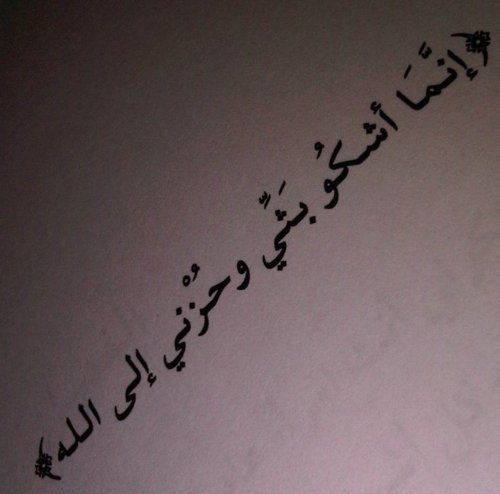 ﴿إنَّمَا أشكُو بَثِّي وحُزْني إلى الله﴾